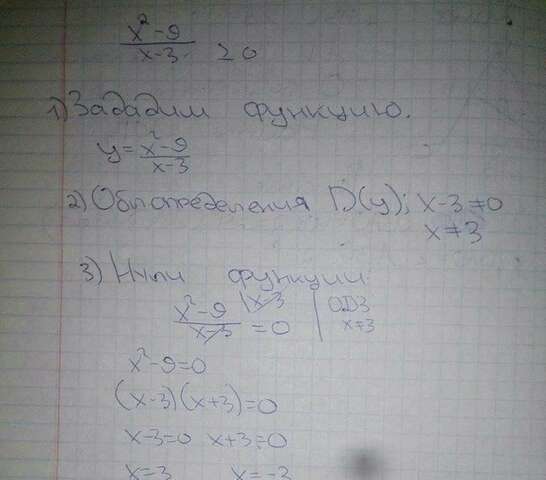 x²-9 / x-3 ≥ 0
1) Зададим функцию.
y = x²-9 / x-3
2) Обл определения D(y); x-3≠0
x≠3
3) Нули функции
x²-9 / x-3 = 0 \x-3 | ОДЗ
x≠3
x²-9=0
(x-3)(x+3)=0
x-3=0 x+3=0
x=3 x=-3